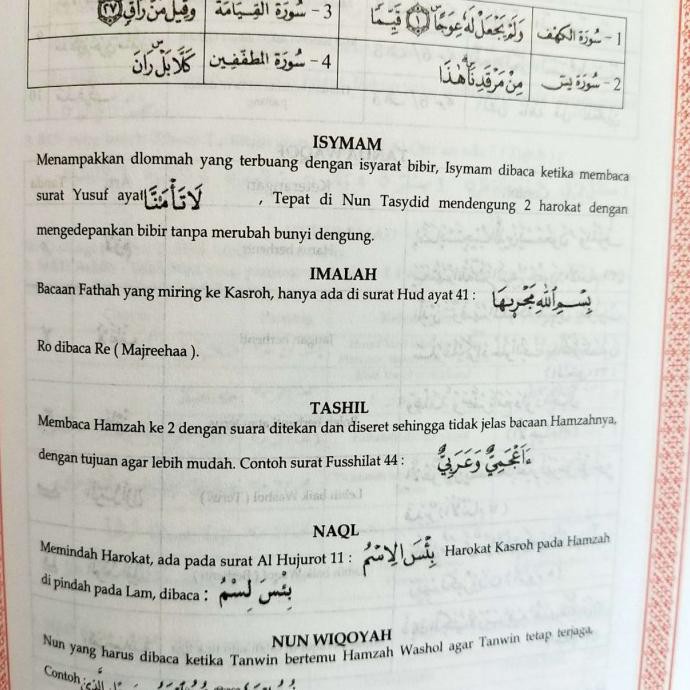 ١ - سُوْرَة الكهف وَلَمْ يَجْعَلْ لَهُ عِوَجًا ۜ ١ قَيِّمًا ٣ - سُوْرَة القِيَامَة وَقِيْلَ مَنْ رَاقٍ ٢٧
٢ - سُوْرَة يس مِنْ مَرْقَدِنَا هٰذَا ٤ - سُوْرَة المطففين كَلَّا بَلْ رَانَ
ISYMAM
Menampakkan dlommah yang terbuang dengan isyarat bibir, Isymam dibaca ketika membaca
surat Yusuf ayat لَا تَأْمَنَّا , Tepat di Nun Tasydid mendengung 2 harokat dengan
mengedepankan bibir tanpa merubah bunyi dengung.
IMALAH
Bacaan Fathah yang miring ke Kasroh, hanya ada di surat Hud ayat 41 : بِسْمِ اللهِ مَجْرٰىهَا
Ro dibaca Re ( Majreehaa ).
TASHIL
Membaca Hamzah ke 2 dengan suara ditekan dan diseret sehingga tidak jelas bacaan Hamzahnya,
dengan tujuan agar lebih mudah. Contoh surat Fusshilat 44 : ءَاَعْجَمِيٌّ وَعَرَبِيٌّ
NAQL
Memindah Harokat, ada pada surat Al Hujurot 11 : بِئْسَ الِاسْمُ Harokat Kasroh pada Hamzah
di pindah pada Lam, dibaca : بِئْسَ لِسْمُ
NUN WIQOYAH
Nun yang harus dibaca ketika Tanwin bertemu Hamzah Washol agar Tanwin tetap terjaga,
Contoh :